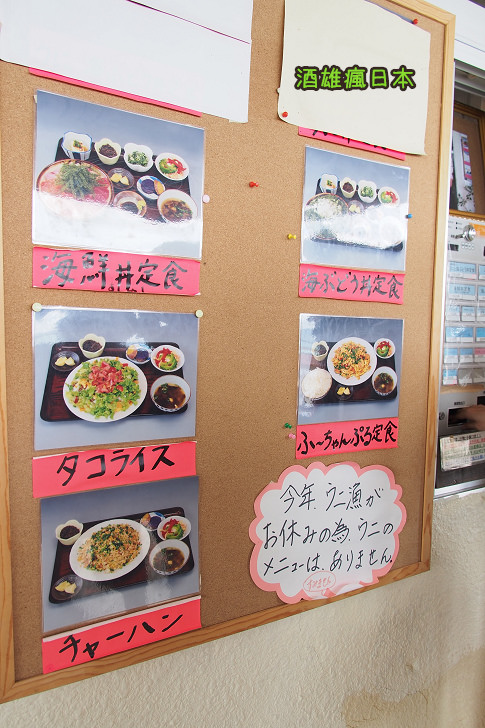 酒雄瘋日本
海鮮丼定食
海ぶどう丼定食
タコライス
ふ〜ちゃんぷる定食
チャーハン
今年、ウニ漁が
お休みの為、ウニの
メニューは、ありません。
すみません